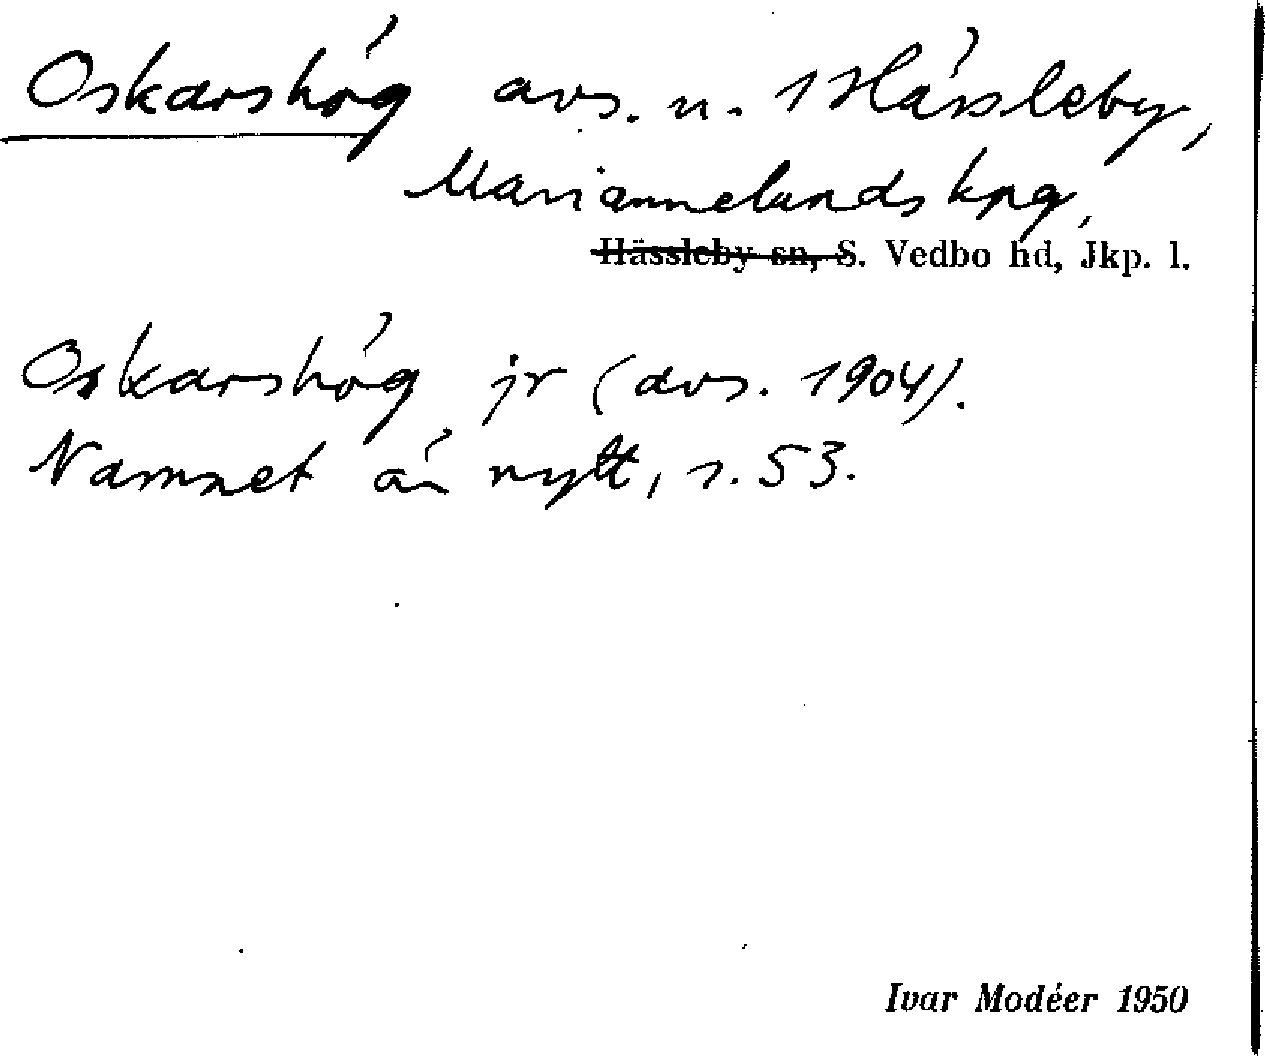 Oskarshög avs. u. 1 Hässleby,
Mariannelunds kpg,
Hässleby sn, S. Vedbo hd, Jkp. l.
Oskarshög jr (avs. 1904).
Namnet är nytt, s. 53.
Ivar Modéer 1950